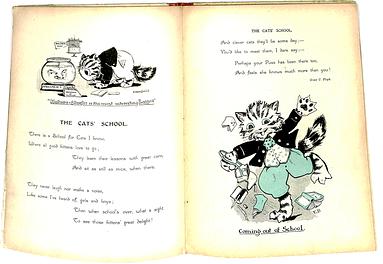 THE CATS' SCHOOL.
There is a School for Cats I know,
Where all good kittens love to go;
They learn their lessons with great care,
And sit as still as mice, when there.
They never laugh nor make a noise,
Like some I've heard of, girls and boys;
Then when school's over, what a sight
To see those kittens' great delight!
THE CATS' SCHOOL.
And clever cats they'll be some day,—
You'd like to meet them, I dare say;—
Perhaps your Puss has been there too,
And feels she knows much more than you!
Coming out of School.